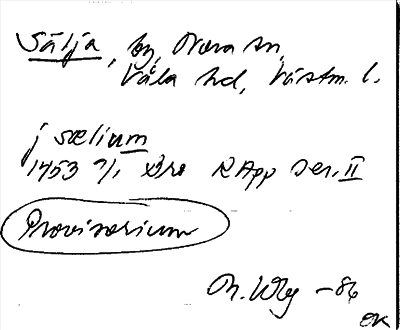 Sälja, by, Nora sn,
Våla hd, Västm. l.
j sælium
1453 9/1 Bro RApp ser. II
Provisorium
Th. Wbg -86
EK